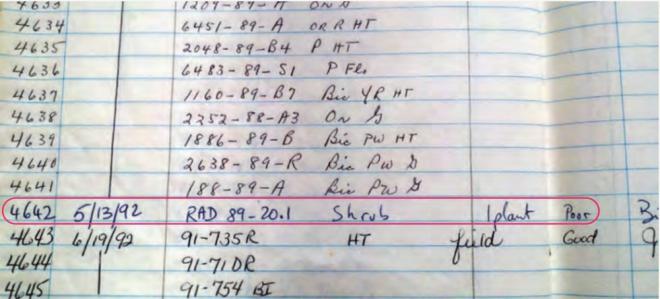 4633 1209-89-A
4634 6451-89-A OR R HT
4635 2048-89-B4 P HT
4636 6483-89-S1 P Flo
4637 1160-89-B7 Bic YR HT
4638 2352-88-A3 On G
4639 1886-89-B Bic PW HT
4640 2638-89-R Bic PW G
4641 188-89-A Bic PW G
4642 5/13/92 RAD 89-20.1 Shrub 1 plant Poor
4643 6/19/92 91-735R HT field Good
4644 91-71DR
4645 91-754 BI